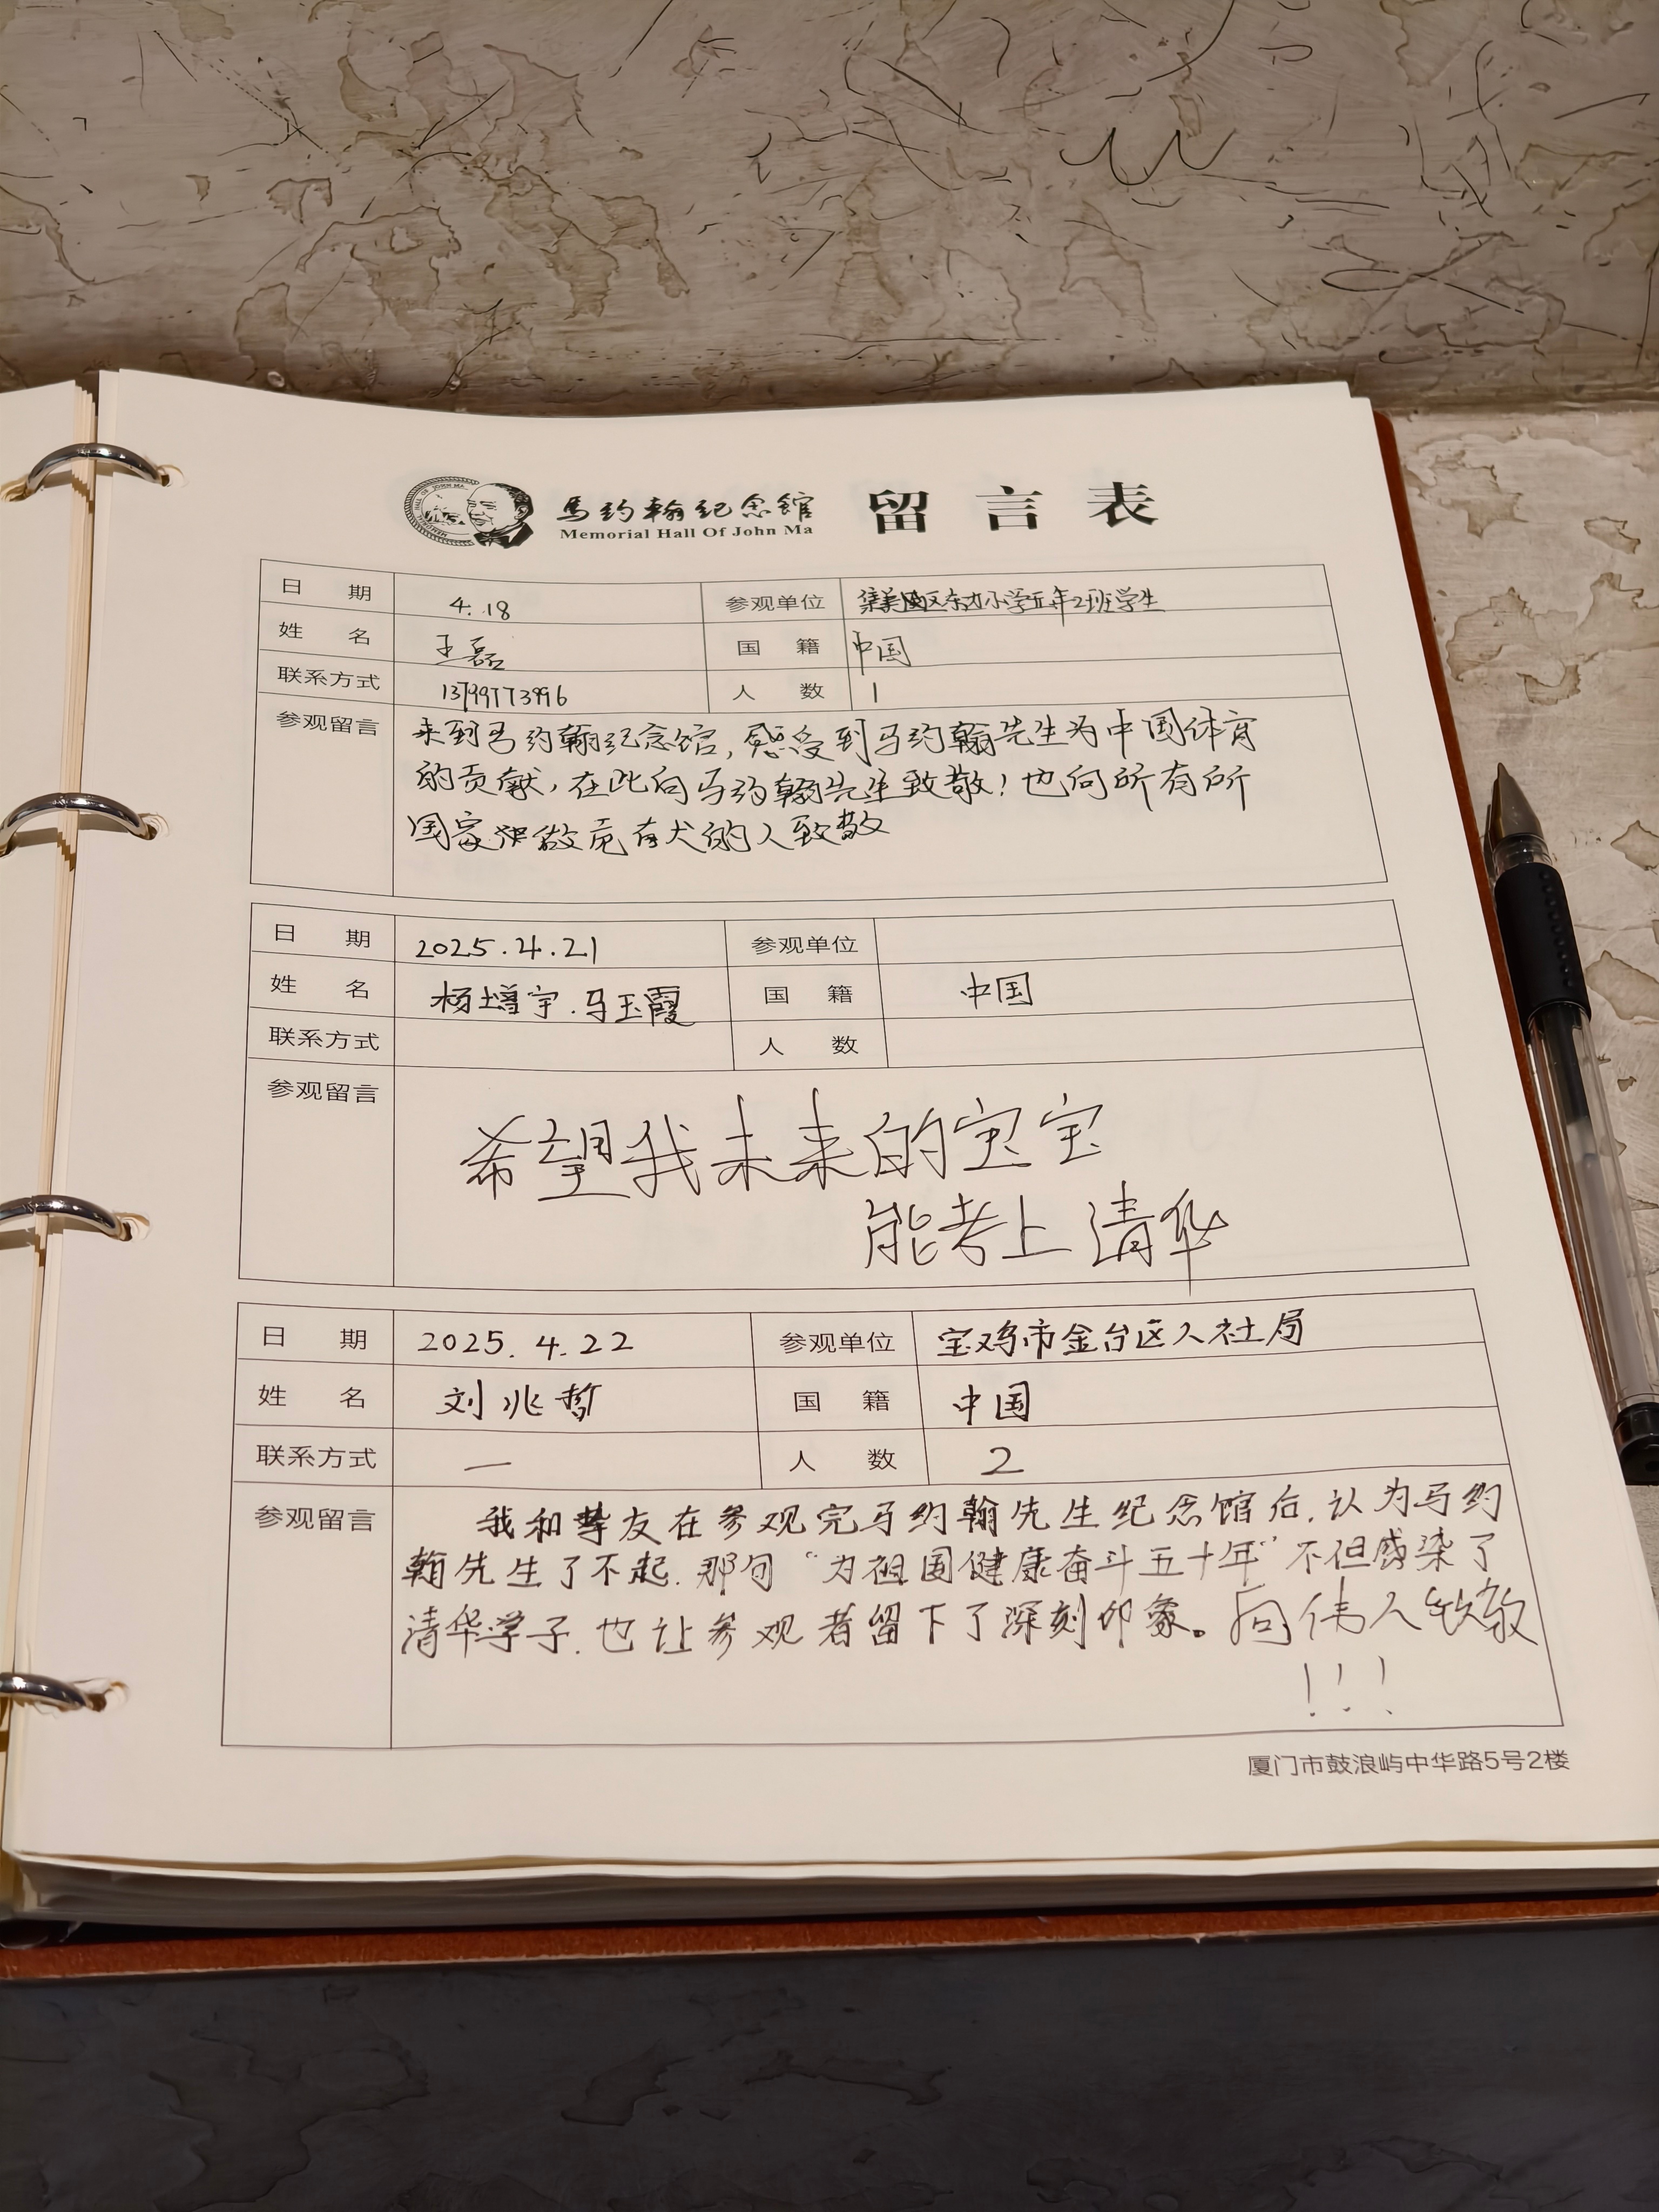 馬约翰纪念馆 留言表
Memorial Hall Of John Ma
日 期 4.18 参观单位 小学五年2班学生
姓 名 王磊 国 籍 中国
联系方式 人 数 1
参观留言 来到马约翰纪念馆,感受到马约翰先生为中国体育
的贡献,在此向马约翰先生致敬!也向所有所
国家 做 有 的人致敬
日 期 2025.4.21 参观单位
姓 名 杨增宇.马玉霞 国 籍 中国
联系方式 人 数
参观留言 希望我未来的宝宝
能考上清华
日 期 2025.4.22 参观单位 宝鸡市金台区人社局
姓 名 刘兆哲 国 籍 中国
联系方式 — 人 数 2
参观留言 我和挚友在参观完马约翰先生纪念馆后,认为马约
翰先生了不起.那句“为祖国健康奋斗五十年”不但感染了
清华学子.也让参观者留下了深刻印象。向伟人致敬
!!!
厦门市鼓浪屿中华路5号2楼